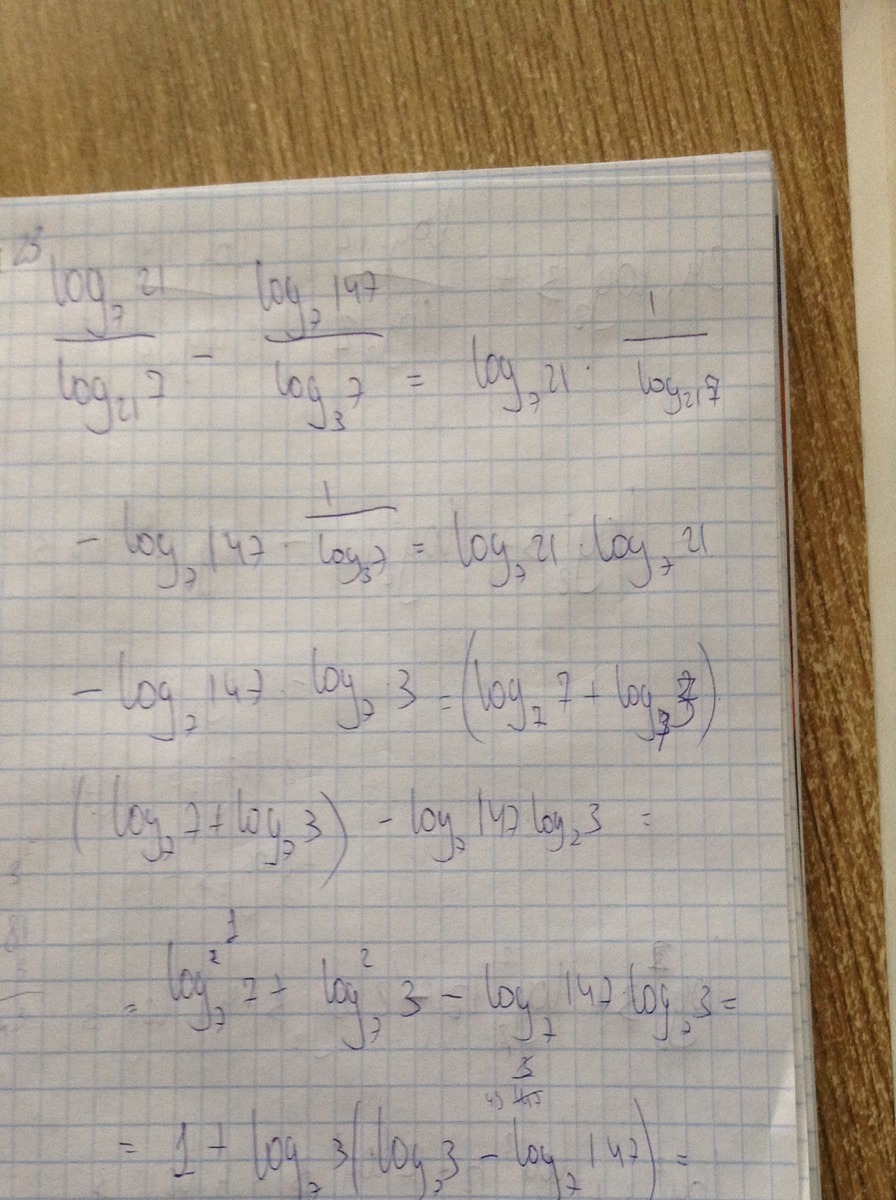 23
log₇ 21 / log₂₁ 7 - log₇ 147 / log₃ 7 = log₇ 21 · 1 / log₂₁ 7
- log₇ 147 · 1 / log₃ 7 = log₇ 21 · log₇ 21
- log₇ 147 · log₇ 3 = (log₇ 7 + log₇ 3) ·
(log₇ 7 + log₇ 3) - log₇ 147 log₇ 3 =
1
= log₇² 7 + log₇² 3 - log₇ 147 log₇ 3 =
3
= 1 + log₇ 3 (log₇ 3 - log₇ 147) =